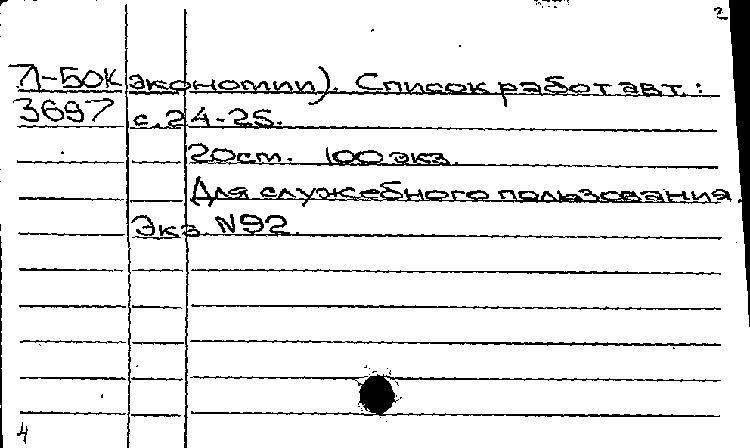 2
Л-50К экономии). Список работ авт.:
3697 с.24-25.
20см. 100 экз.
Для служебного пользования.
Экз. N92.
4